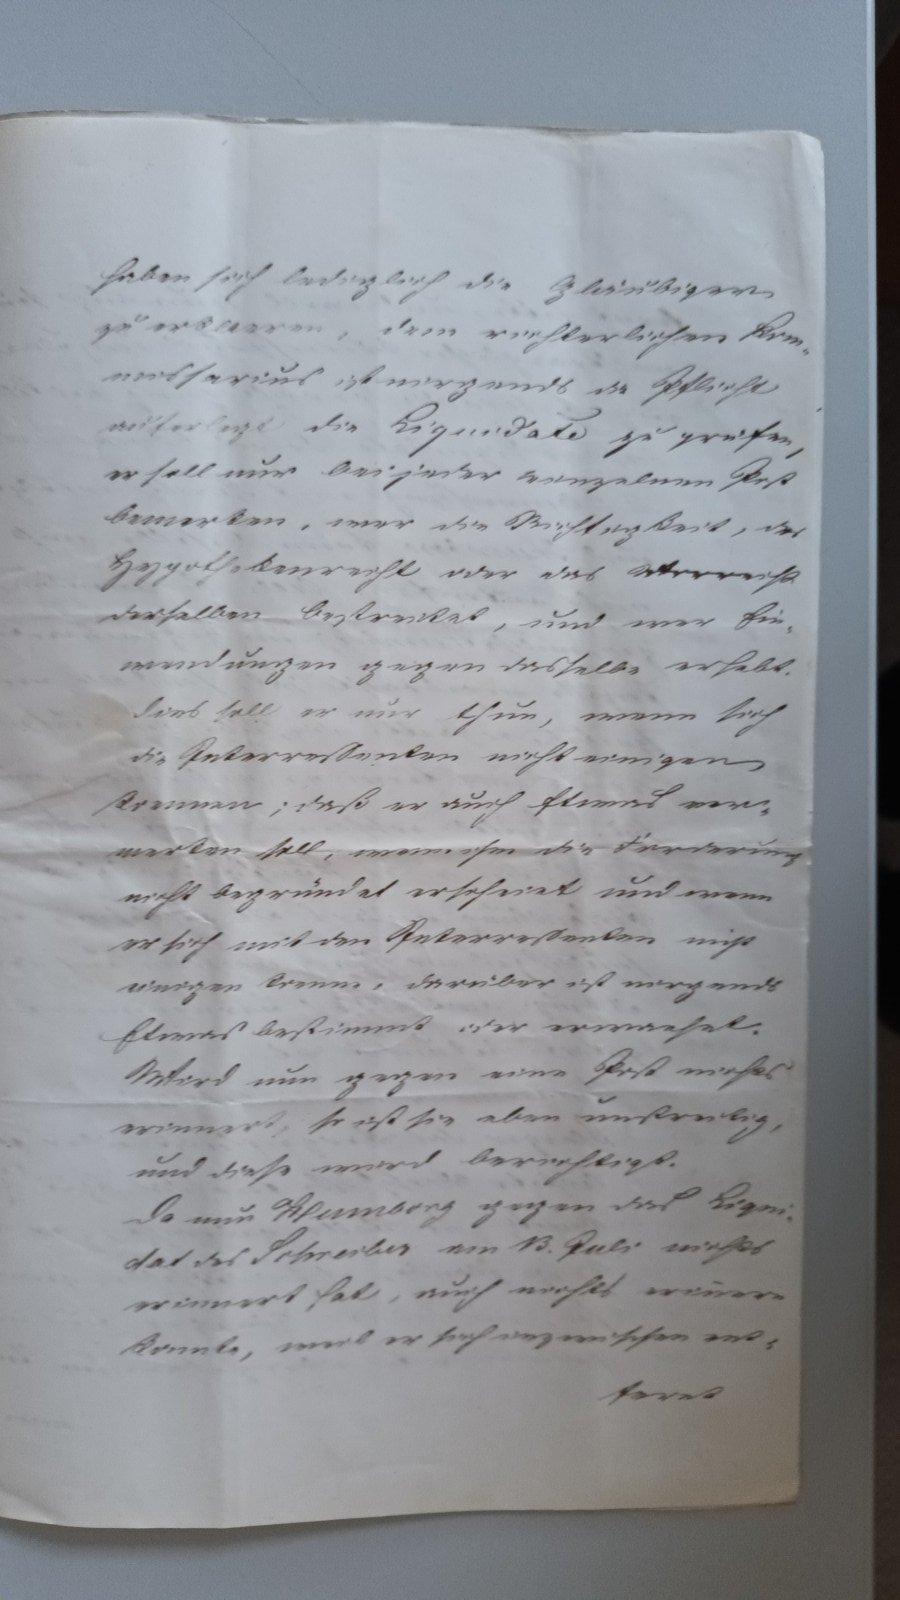 haben sich lediglich die Gläubiger
zu erklaeren, dem richterlichen Kom-
missarius ist nirgends die Pflicht
auferlegt die Liquidate zu prüfen,
er soll nur bei jeder einzelnen Post
bemerken, wer die Richtigkeit, das
Hypothekenrecht oder das Vorrecht
derselben bestreitet, und wer Ein-
wendungen gegen dasselbe erhebt.
dies soll er nur thun, wenn sich
die Interressenten nicht einigen
koennen; daß er auch Etwas ver-
merken soll, wenn ihm die Forderung
nicht begründet erscheint und wenn
er sich mit den Interressenten nicht
einigen kann, darüber ist nirgends
Etwas bestimmt oder erwaehnt.
Wird nun gegen eine Post nichts
erinnert, so ist sie eben unstreitig,
und diese wird berichtigt.
Da nun gegen das Liqui-
dat des Schreiber am 13. Juli nichts
erinnert hat, auch nichts erinnern
konnte, weil er sich inzwischen ent-
fernt